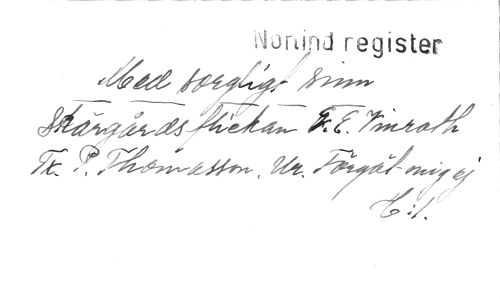 Norlind register
Med sorgligt sinn
Skärgårdsflickan G. E. Vinroth
Tx. P. Thomasson. Ur. Förgät mig ej